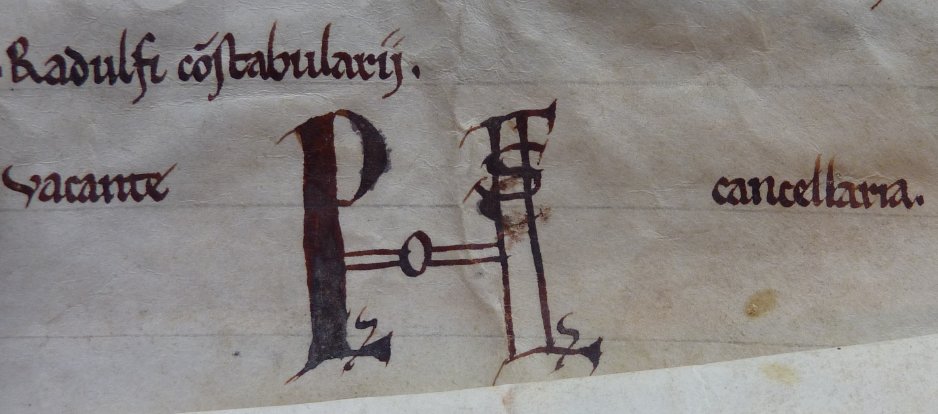 .Radulfi cōstabularij.
vacante cancellaria.